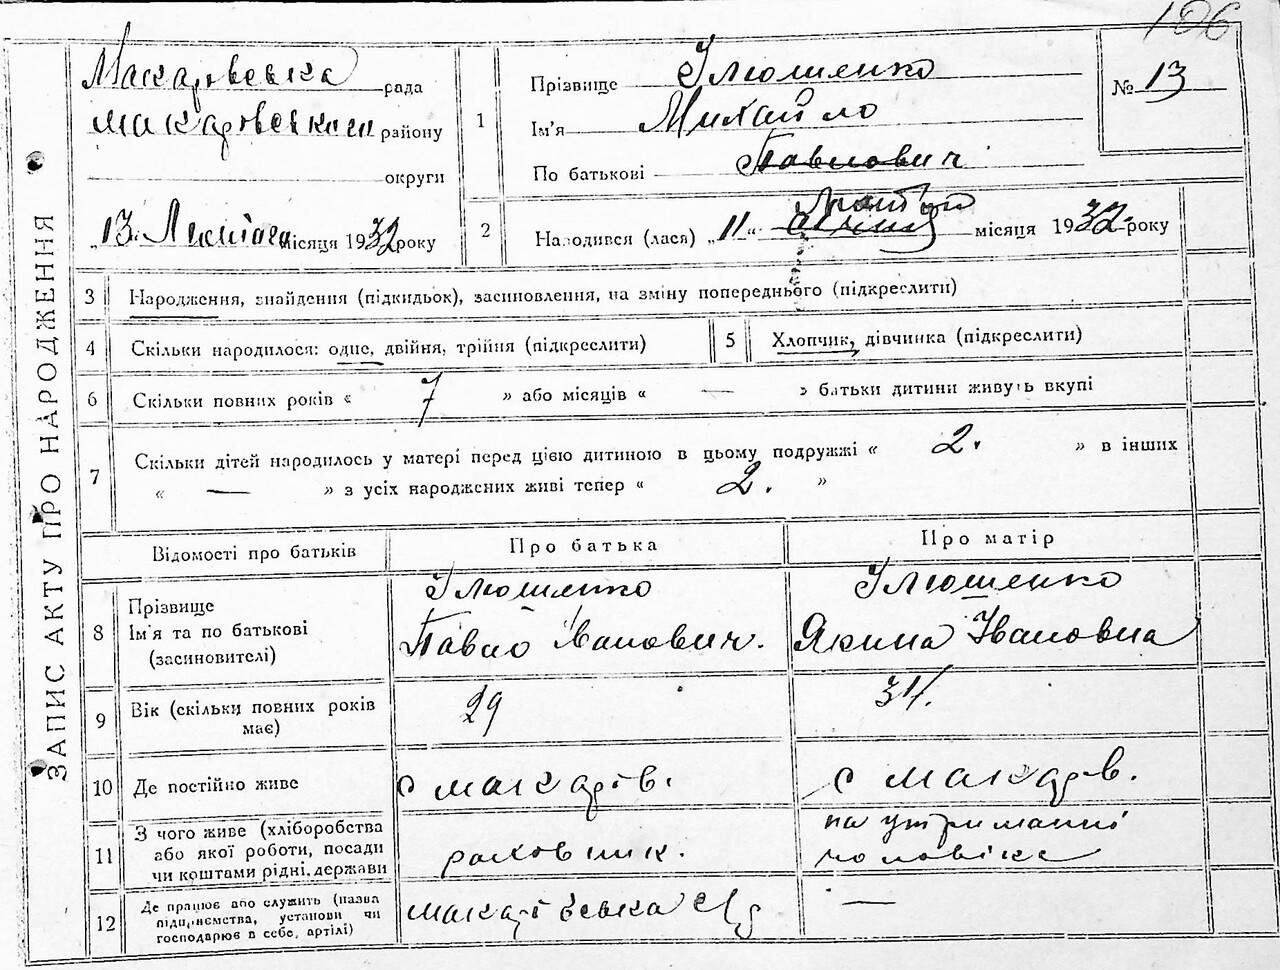 106
Макарівська рада
Макарівського району
округи
„13„ Лютого місяця 1932 року
1
Прізвище Ілюшенко
Ім'я Михайло
По батькові Павлович
№ 13
2
Народився (лася) „11„ лютий місяця 1932 року
ЗАПИС АКТУ ПРО НАРОДЖЕННЯ
3 Народження, знайдення (підкидьок), засиновлення, на зміну попереднього (підкреслити)
4 Скільки народилося: одне, двійня, трійня (підкреслити)
5 Хлопчик, дівчинка (підкреслити)
6 Скільки повних років « 7 » або місяців « — » батьки дитини живуть вкупі
7 Скільки дітей народилось у матері перед цією дитиною в цьому подружжі « 2. » в інших
« — » з усіх народжених живі тепер « 2. »
Відомості про батьків Про батька Про матір
8
Прізвище
Ім'я та по батькові
(засиновителі)
Ілюшенко
Павло Іванович.
Ілюшенко
Якина Івановна
9
Вік (скільки повних років
має)
29
31.
10 Де постійно живе
с Макарів.
с Макарів.
11
З чого живе (хліборобства
або якої роботи, посади
чи коштами рідні, держави
раховник.
на утриманні
чоловіка
12
Де працює або служить (назва
підприємства, установи чи
господарює в себе, артілі)
Макарівська
—